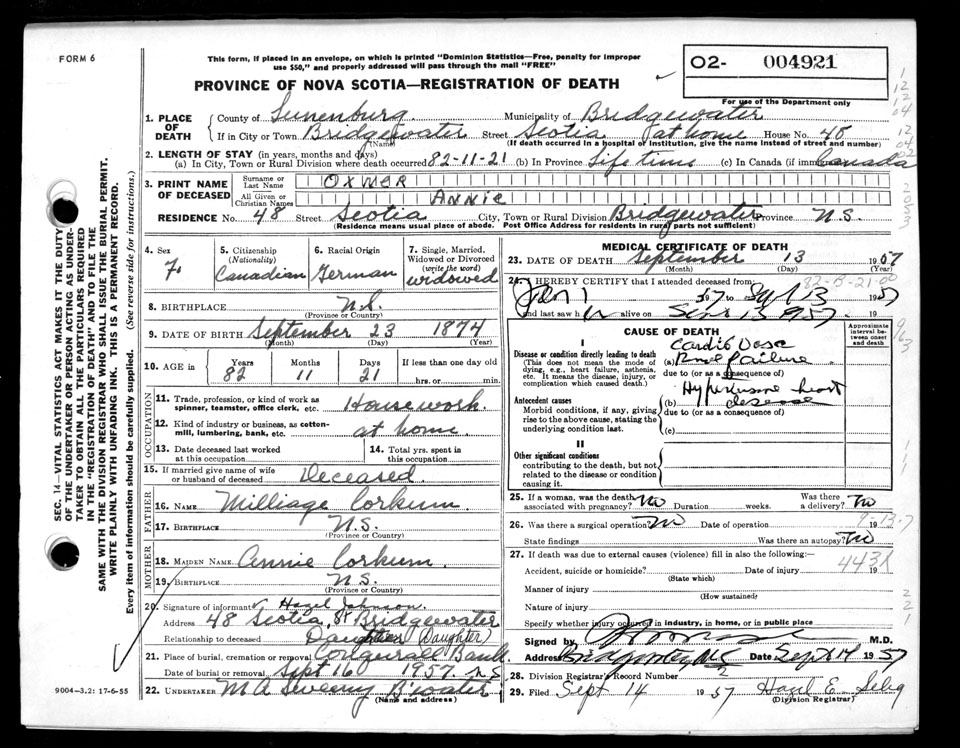 FORM 6
This form, if placed in an envelope, on which is printed "Dominion Statistics—Free, penalty for improper
use $50," and properly addressed will pass through the mail "FREE"
PROVINCE OF NOVA SCOTIA—REGISTRATION OF DEATH
02- 004921
For use of the Department only
1. PLACE OF DEATH
County of Lunenburg Municipality of Bridgewater
If in City or Town Bridgewater Street Scotia at home House No. 48
(Name) (If death occurred in a hospital or institution, give its name instead of street and number)
2. LENGTH OF STAY (in years, months and days)
(a) In City, Town or Rural Division where death occurred 82-11-21 (b) In Province Life time (c) In Canada (if immigrant) Canada
3. PRINT NAME OF DECEASED
Surname or Last Name OXNER
All Given or Christian Names ANNIE
RESIDENCE No. 48 Street Scotia City, Town or Rural Division Bridgewater Province N.S.
(Residence means usual place of abode. Post Office Address for residents in rural parts not sufficient)
4. Sex F.
5. Citizenship (Nationality) Canadian
6. Racial Origin German
7. Single, Married, Widowed or Divorced (write the word) widowed
8. BIRTHPLACE N.S.
(Province or Country)
9. DATE OF BIRTH September 23 1874
(Month) (Day) (Year)
10. AGE in Years 82 Months 11 Days 21 If less than one day old
hrs. or min.
OCCUPATION
11. Trade, profession, or kind of work as spinner, teamster, office clerk, etc. Housework.
12. Kind of industry or business, as cotton-mill, lumbering, bank, etc. at home
13. Date deceased last worked at this occupation
14. Total yrs. spent in this occupation
15. If married give name of wife or husband of deceased Deceased
FATHER
16. NAME Milliage Corkum
17. BIRTHPLACE N.S.
(Province or Country)
MOTHER
18. MAIDEN NAME Annie Corkum
19. BIRTHPLACE N.S.
(Province or Country)
20. Signature of informant Hazel Johnson.
Address 48 Scotia St Bridgewater
Relationship to deceased Daughter (Daughter)
21. Place of burial, cremation or removal Conquerall Bank
Date of burial or removal Sept 16 1957. N.S
22. UNDERTAKER M A Sweeny B'water
(Name and address)
MEDICAL CERTIFICATE OF DEATH
23. DATE OF DEATH September 13 1957
(Month) (Day) (Year)
82-B-21-00
24. I HEREBY CERTIFY that I attended deceased from:
Jan 1 57 to Sept 13 1957
and last saw h alive on Sept 13 1957. 19
CAUSE OF DEATH
Approximate interval between onset and death
I
Disease or condition directly leading to death
(This does not mean the mode of dying, e.g., heart failure, asthenia, etc. It means the disease, injury, or complication which caused death.)
(a) failure
due to (or as a consequence of)
Antecedent causes
Morbid conditions, if any, giving rise to the above cause, stating the underlying condition last.
(b) heart disease
due to (or as a consequence of)
(c)
II
Other significant conditions
contributing to the death, but not related to the disease or condition causing it.
25. If a woman, was the death associated with pregnancy? No Duration weeks. Was there a delivery? No
26. Was there a surgical operation? No Date of operation 19
9-13-7
State findings Was there an autopsy? No
27. If death was due to external causes (violence) fill in also the following:—
Accident, suicide or homicide? Date of injury 19
(State which)
443X
Manner of injury
(How sustained)
Nature of injury
Specify whether injury occurred in industry, in home, or in public place
Signed by M.D.
Address Bridgewater N.S Date Sept 14 1957
28. Division Registrar's Record Number
29. Filed Sept 14 1957 Hazel E. Selig
(Division Registrar)
SEC. 14—VITAL STATISTICS ACT MAKES IT THE DUTY
OF THE UNDERTAKER OR PERSON ACTING AS UNDER-
TAKER TO OBTAIN ALL THE PARTICULARS REQUIRED
IN THE "REGISTRATION OF DEATH" AND TO FILE THE
SAME WITH THE DIVISION REGISTRAR WHO SHALL ISSUE THE BURIAL PERMIT.
WRITE PLAINLY WITH UNFADING INK. THIS IS A PERMANENT RECORD.
Every item of information should be carefully supplied. (See reverse side for instructions.)
9004—3.2: 17-6-55